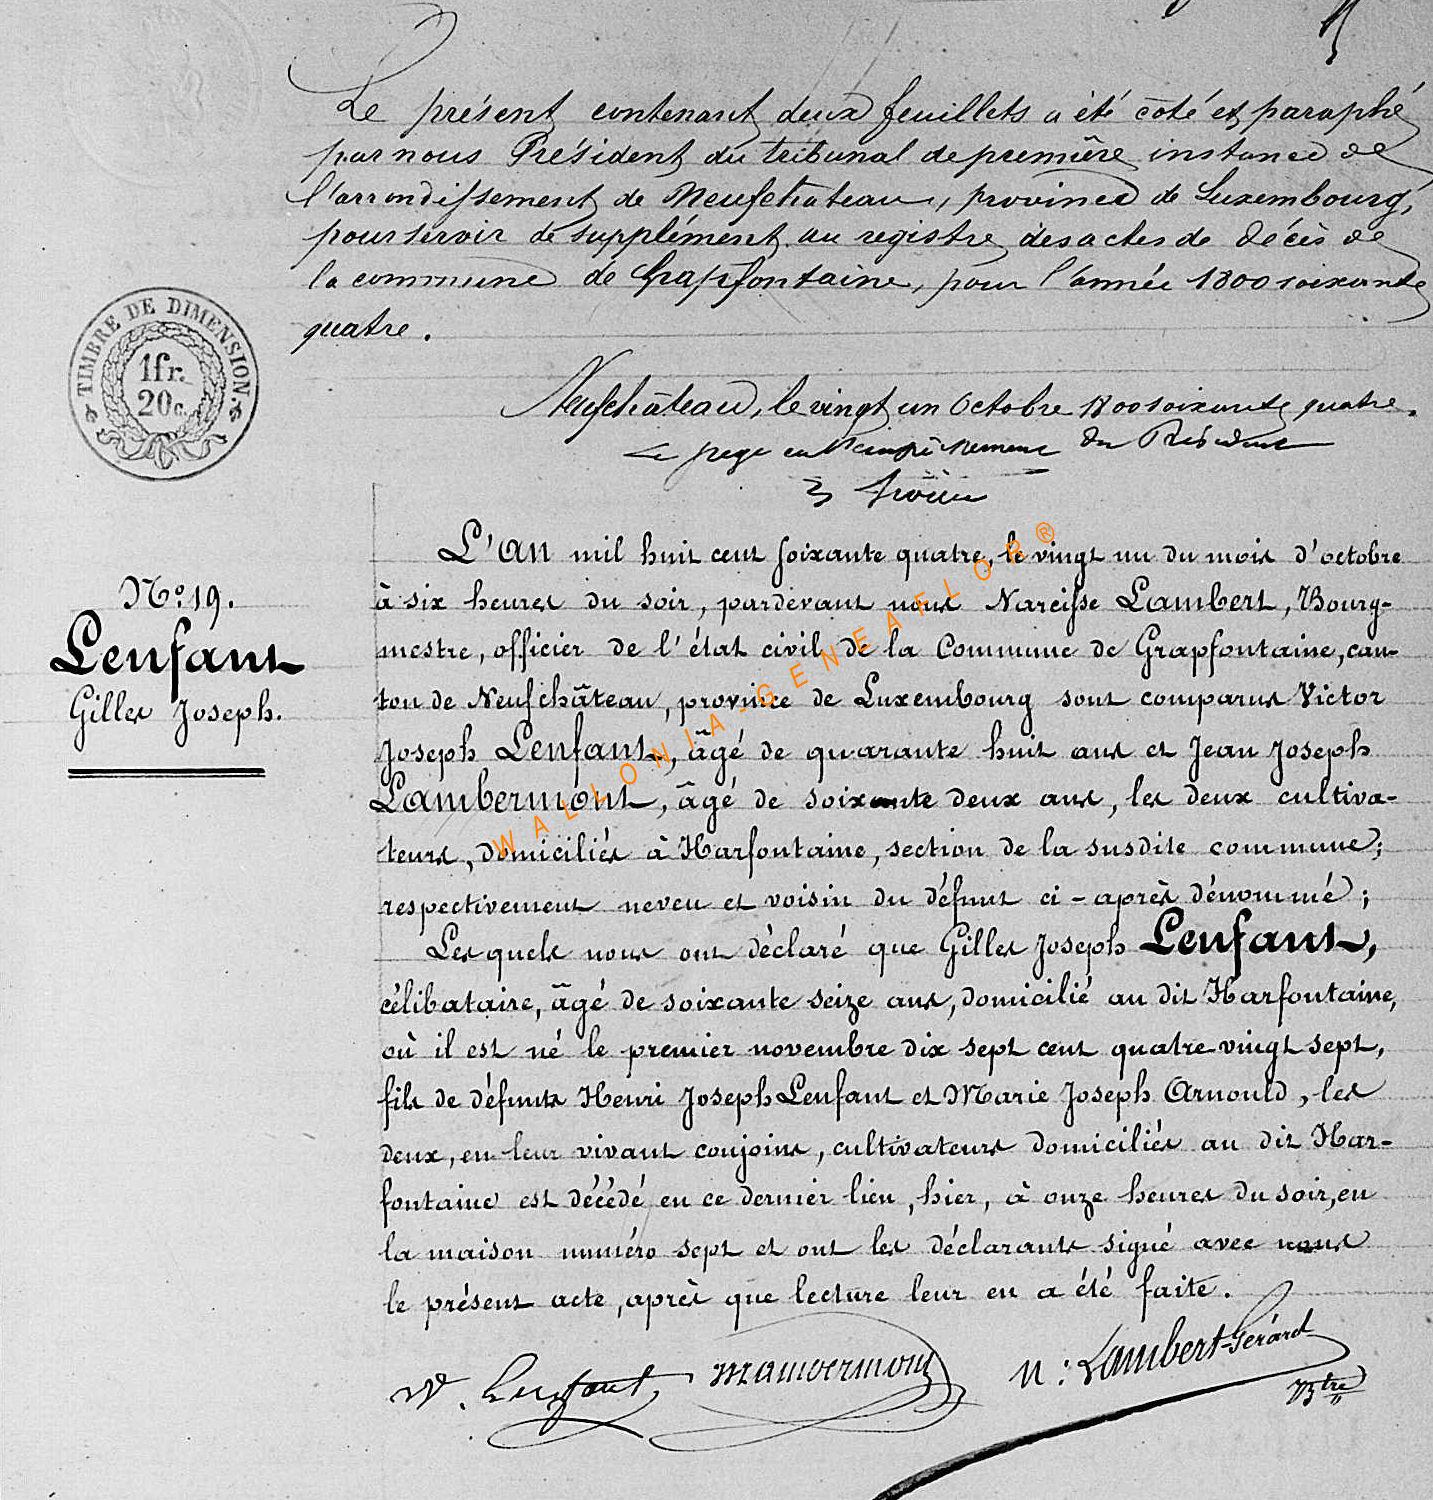 Le présent contenant deux feuillets a été coté et paraphé
par nous Président du tribunal de première instance de
l'arrondissement de Neufchateau, province de Luxembourg,
pour servir de supplément au registre des actes de décès de
la commune de Grapfontaine, pour l'année 1800 soixante
quatre.
TIMBRE DE DIMENSION.
1fr.
20c.
Neufchâteau, le vingt un Octobre 1800 soixante quatre.
Le juge en empêchement du Président
N° 19.
Lenfant
Gilles Joseph.
L'AN mil huit cent soixante quatre, le vingt un du mois d'octobre
à six heures du soir, pardevant nous Narcisse Lambert, Bourg-
mestre, officier de l'état civil de la Commune de Grapfontaine, can-
ton de Neufchâteau, province de Luxembourg sont comparus Victor
Joseph Lenfant, âgé de quarante huit ans et Jean Joseph
Lambermont, âgé de soixante deux ans, les deux cultiva-
teurs, domiciliés à Harfontaine, section de la susdite commune;
respectivement neveu et voisin du défunt ci-après dénommé;
Les quels nous ont déclaré que Gilles Joseph Lenfant,
célibataire, âgé de soixante seize ans, domicilié au dit Harfontaine,
où il est né le premier novembre dix sept cent quatre-vingt sept,
fils de défunts Henri Joseph Lenfant et Marie Joseph Arnould, les
deux, en leur vivant conjoins, cultivateurs domiciliés au dit Har-
fontaine est décédé en ce dernier lieu, hier, à onze heures du soir, en
la maison numéro sept et ont les déclarants signé avec nous
le présent acte, après que lecture leur en a été faite.
Lenfant
N: Lambert-Gérard
Btre
WALLONIA-GENEAFLOR®